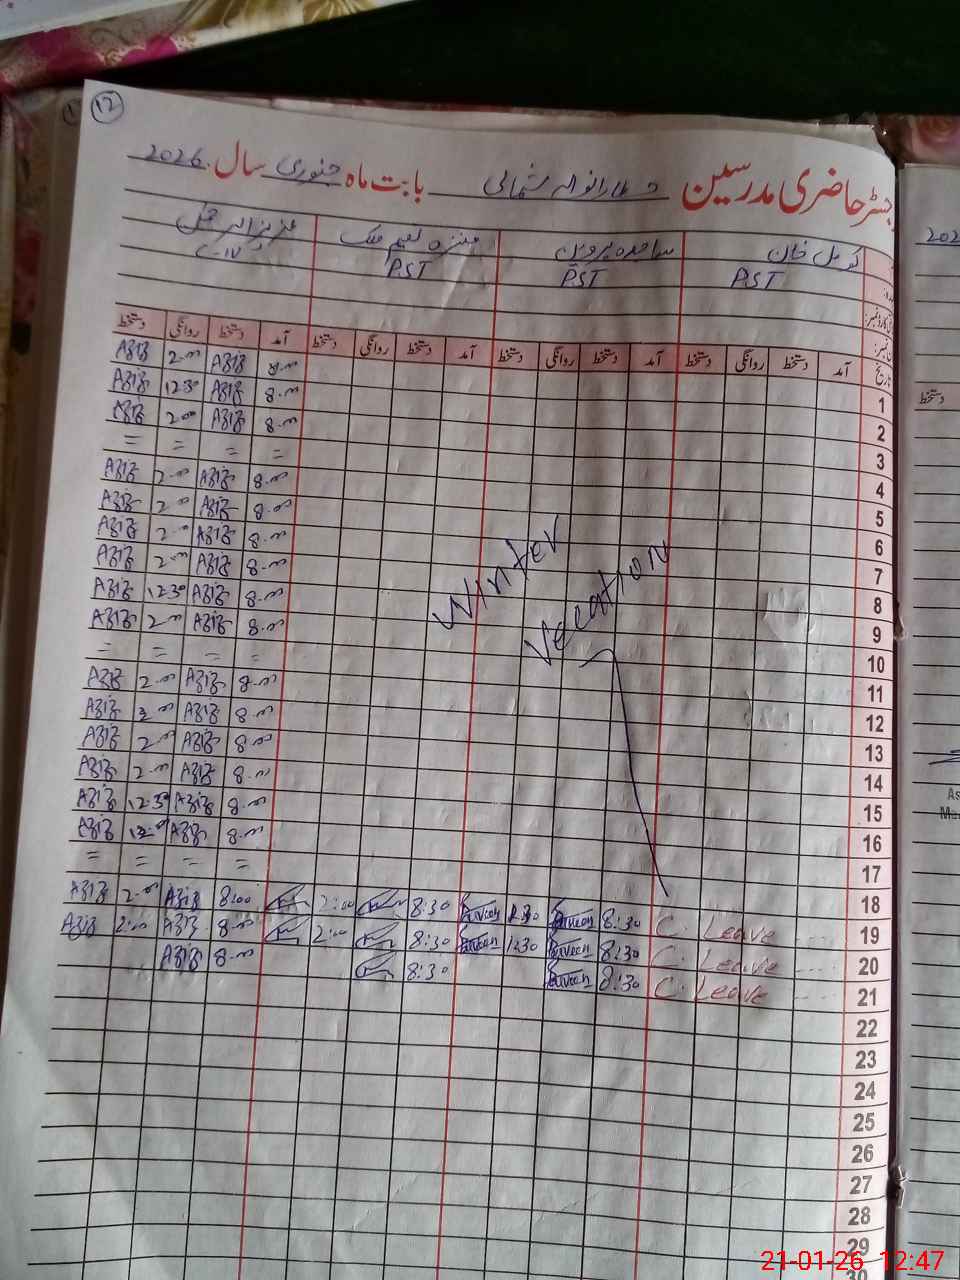 ۱۲
رجسٹر حاضری مدرسین بابت ماہ جنوری سال 2026
کومل خان ساجدہ پروین منزہ نعیم ملک
PST PST PST C-IV
تاریخ آمد دستخط روانگی دستخط آمد دستخط روانگی دستخط آمد دستخط روانگی دستخط آمد دستخط روانگی دستخط
1 8:00 Aziz 2:00 Aziz
2 8:00 Aziz 12:30 Aziz
3 8:00 Aziz 2:00 Aziz
4 = = = =
5 8:00 Aziz 2:00 Aziz
6 8:00 Aziz 2:00 Aziz
7 8:00 Aziz 2:00 Aziz
8 8:00 Aziz 2:00 Aziz
9 8:00 Aziz 12:30 Aziz
10 8:00 Aziz 2:00 Aziz
11 = = = =
12 8:00 Aziz 2:00 Aziz
13 8:00 Aziz 2:00 Aziz
14 8:00 Aziz 2:00 Aziz
15 8:00 Aziz 2:00 Aziz
16 8:00 Aziz 12:30 Aziz
17 8:00 Aziz Aziz
18 = = = =
Winter
Vecation
19 C. Leave 8:30 Parveen 1:30 Parveen 8:30 2:00 8:00 Aziz 2:00 Aziz
20 C. Leave 8:30 Parveen 1:30 Parveen 8:30 2:00 8:00 Aziz 2:00 Aziz
21 C. Leave 8:30 Parveen 8:30 8:00 Aziz
22
23
24
25
26
27
28
29
30
202
دستخط
As
21-01-26 12:47